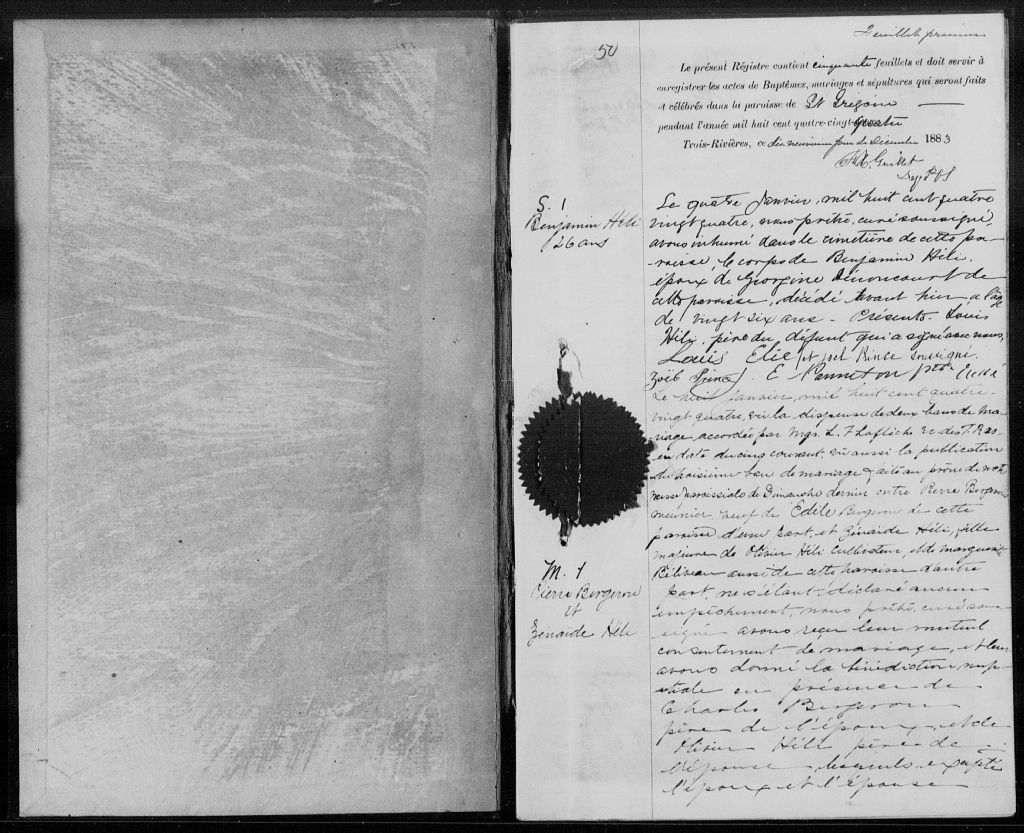 50
Feuillet premier
Le présent Régistre contient cinquante feuillets et doit servir à
enregistrer les actes de Baptêmes, mariages et sépultures qui seront faits
et célébrés dans la paroisse de St Grégoire
pendant l'année mil huit cent quatre-vingt-quatre
Trois-Rivières, ce dix neuvième jour de Décembre 1883
F.X. Guillet
Dep. P C S
S. 1
Benjamin Héli
26 ans
Le quatre Janvier, mil huit cent quatre
vingt quatre, nous prêtre, curé soussigné,
avons inhumé dans le cimetière de cette pa-
-roisse, le corps de Benjamin Héli,
époux de Georgine Dénoncourt de
cette paroisse, décédé avant hier, à l'age
de vingt six ans - Présents - Louis
Héli, père du défunt qui a signé avec nous,
Louis Elie et Joel Prince soussigné.
Zoël Prince E Panneton Ptre
M. 1
Pierre Bergeron
et
Zénaide Héli
Le huit Janvier, mil huit cent quatre-
vingt quatre, vu la dispense de deux bans de ma
riage accordée par Mgr. L. F Lafleche Ev. des T. Riv.
en date du cinq courant, vu aussi la publication
du troisième ban de mariage faite au prône de notre
messe paroissiale de Dimanche dernier entre Pierre Bergeron
meunier, veuf de Edile Bergeron de cette
paroisse d'une part, et Zénaide Héli, fille
majeure de Olivier Héli Cultivateur, et de Marguerite
Béliveau aussi de cette paroisse d'autre
part, ne s'étant déclaré aucun
empêchement, nous prêtre, curé sous-
signé avons reçu leur mutuel
consentement de mariage, et leur
avons donné la bénédiction nup-
tiale en présence de
Charles Bergeron
père de l'époux, et de
Olivier Héli père de
l'épouse, lesquels, excepté
l'époux et l'épouse